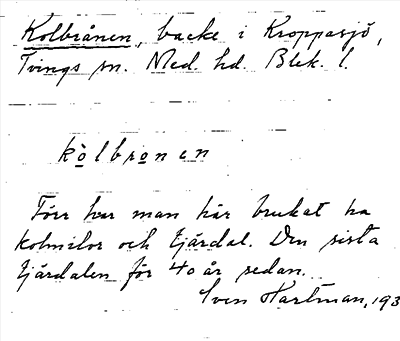 Kolbrånen, backe i Kroppasjö,
Tvings sn. Med. hd. Blek. l.
kolbronen
Förr har man här brukat ha
kolmilor och tjärdal. Den sista
tjärdalen för 40 år sedan.
Sven Hartman, 193